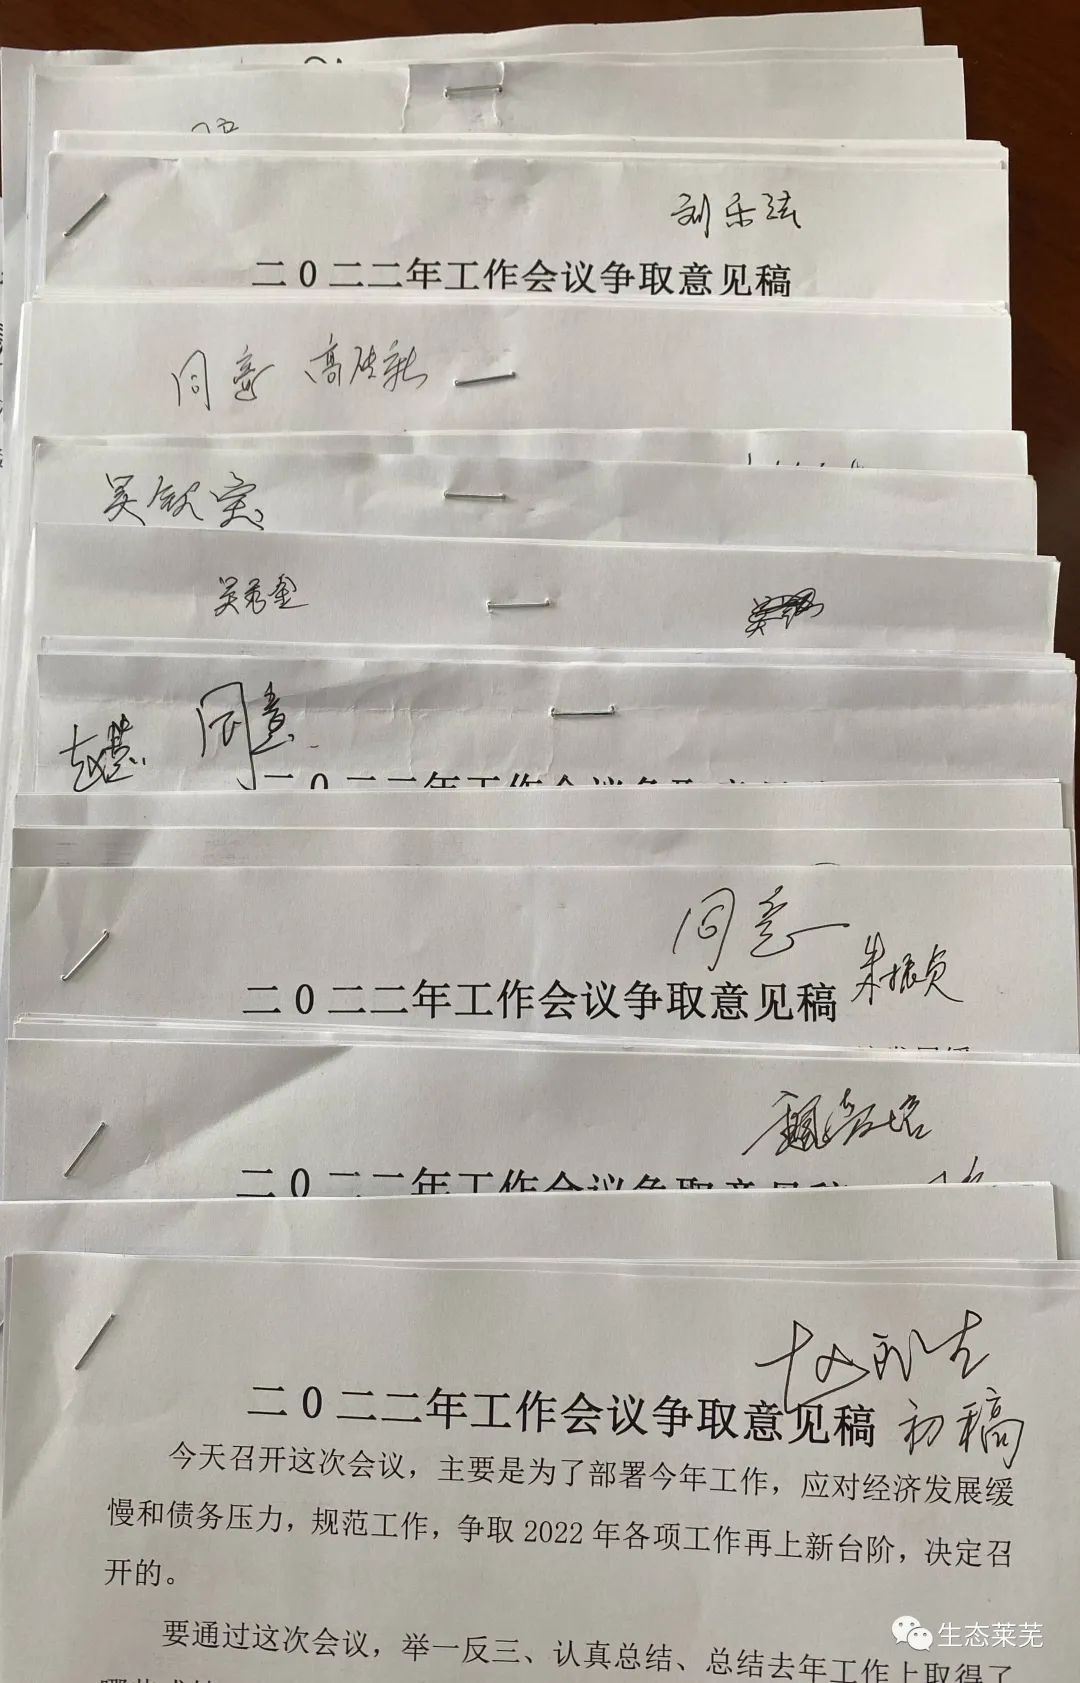 刘乐
二0二二年工作会议争取意见稿
同意
吴钦宝
吴秀奎
赵慧
同意
二0二二年工作会议争取意见稿
同意
朱振贞
二0二二年工作会议争取意见稿
魏
二0二二年工作会议争取意见稿
赵
二0二二年工作会议争取意见稿
初稿
今天召开这次会议，主要是为了部署今年工作，应对经济发展缓
慢和债务压力，规范工作，争取2022年各项工作再上新台阶，决定召
开的。
要通过这次会议，举一反三、认真总结、总结去年工作上取得了
生态莱芜